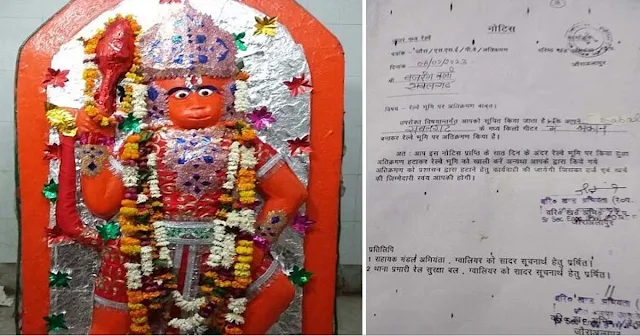 नोटिस
दिनांक 08/02/2023
बजरंग बली
सबलगढ़
विषय - रेलवे भूमि पर अतिक्रमण बावत्।
उपरोक्त विषयान्तर्गत आपको सूचित किया जाता है कि आपने
के मध्य किलो मीटर में मकान
बनाकर रेलवे भूमि पर अतिक्रमण किया है।
अतः आप इस नोटिस प्राप्ति के सात दिन के अंदर रेलवे भूमि पर किया हुआ
अतिक्रमण हटाकर रेलवे भूमि को खाली करें अन्यथा आपके द्वारा किये गये
अतिक्रमण को प्रशासन द्वारा हटाने हेतु कार्यवाही की जायेगी जिसका हर्जा एवं खर्चे
की जिम्मेदारी स्वयं आपकी होगी।
वरि० खण्ड अभियंता
जौरा अलापुर
प्रतिलिपि
1 सहायक मंडल अभियंता, ग्वालियर को सादर सूचनार्थ हेतु प्रेषित।
2 थाना प्रभारी रेल सुरक्षा बल, ग्वालियर को सादर सूचनार्थ हेतु प्रेषित।
वरि० खण्ड अभियंता
जौरा अलापुर